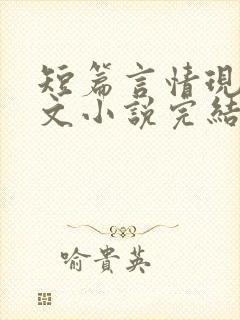 短篇言情現
文小說完結
喻貴英